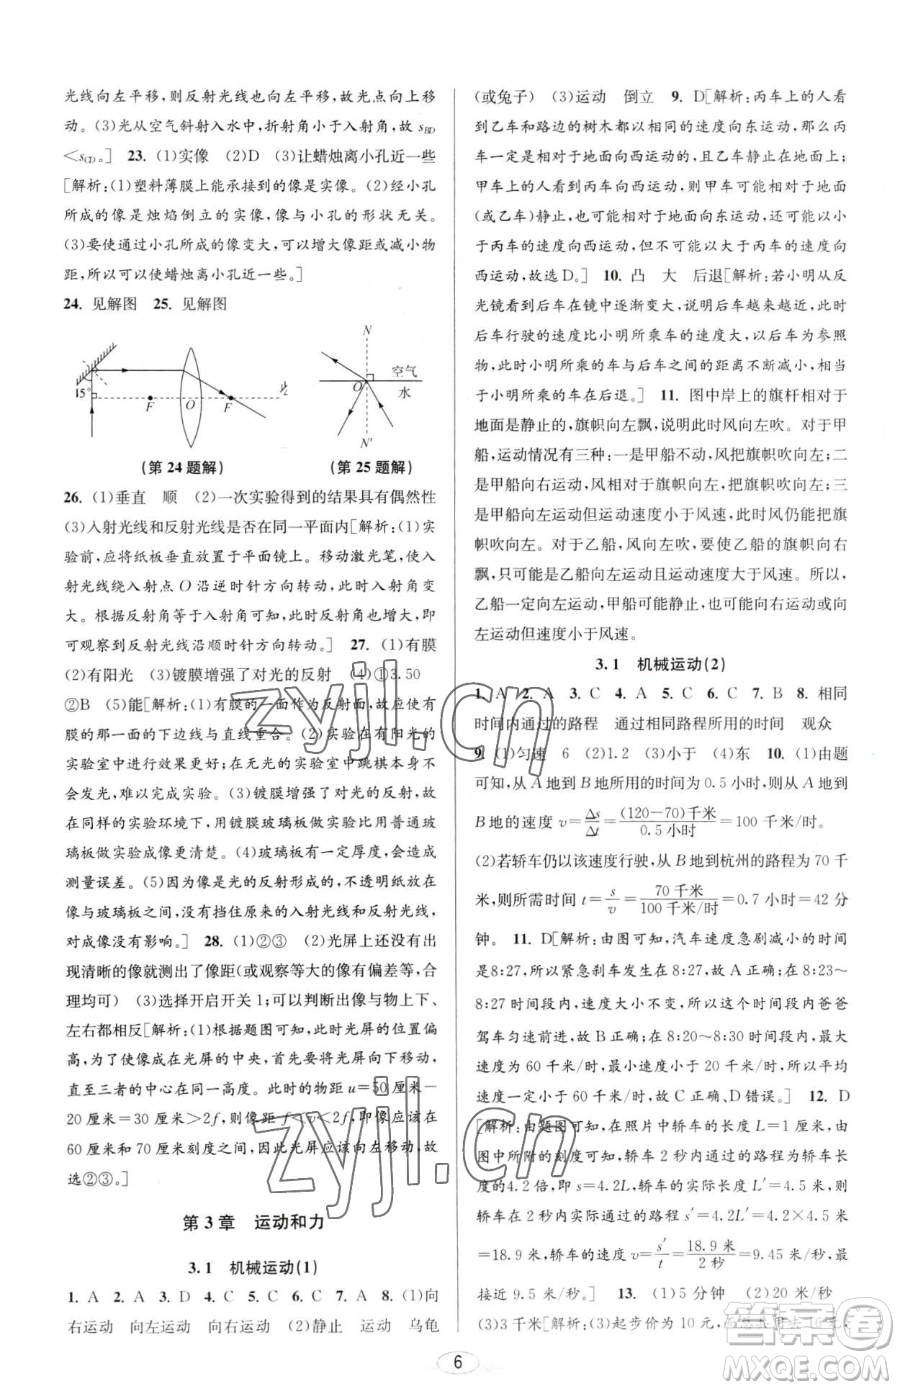 光线向左平移,则反射光线也向左平移,故光点向上移
动。(3)光从空气斜射入水中,折射角小于入射角,故 sBD
<sCD。] 23. (1)实像 (2)D (3)让蜡烛离小孔近一些
[解析:(1)塑料薄膜上能承接到的像是实像。(2)经小孔
所成的像是烛焰倒立的实像,像与小孔的形状无关。
(3)要使通过小孔所成的像变大,可以增大像距或减小物
距,所以可使蜡烛离小孔近一些。]
24. 见解图 25. 见解图
15° F O F
N 空气 O 水 N′
(第 24 题解) (第 25 题解)
26. (1)垂直 顺 (2)一次实验得到的结果具有偶然性
(3)入射光线和反射光线是否在同一平面内[解析:(1)实
验前,应将纸板垂直放置于平面镜上。移动激光笔,使入
射光线绕入射点 O 沿逆时针方向转动,此时入射角变
大。根据反射角等于入射角可知,此时反射角也增大,即
可观察到反射光线沿顺时针方向转动。] 27. (1)有膜
(2)有阳光 (3)镀膜增强了对光的反射 (4)①3.50
②B (5)能[解析:(1)有膜的一面作为反射面,则像与有
膜的那一面的下边线与直线重合。(2)在有阳光的
实验室中能完成实验,在无光的实验室中跳棋本身不会
发光,难以完成实验。(3)镀膜增强了对光的反射,故
在同样的实验环境下,用镀膜玻璃板做实验比用普通玻
璃板做实验成像更清楚。(4)玻璃板有一定厚度,会造成
测量误差。(5)因为像是光的反射形成的,不透明纸放在
像与玻璃板之间,没有挡住原来的入射光线和反射光线,
对成像没有影响。] 28. (1)①②③ (2)光屏上没有出
现清晰的像就测出了像距(或观察等大的像有偏差等,合
理均可) (3)选择开启开关 1;可以判断出所成像与物上下、
左右都相反[解析:(1)根据题图可知,此时光屏的中央偏
高,为了使像成在光屏的中央,应将光屏向下调节,
直至三者的中心在同一高度。此时的物距 u=50 厘米-
20 厘米=30 厘米>2f,则像距 f<v<2f,即像应该在
60 厘米和 70 厘米刻度之间,因此光屏应该向左移动,故
选②③。]
第 3 章 运动和力
3.1 机械运动(1)
1. A 2. A 3. D 4. C 5. A 6. A 7. C 8. (1)向
右运动 向左运动 向右运动 (2)静止 运动 乌龟
(或兔子) (3)运动 倒立 9. D[解析:丙车上的人看
到乙车和路边的树木都以相同的速度向东运动,那么丙
车一定是以相同的速度向西运动的,且乙车静止在地面上;
甲车上的人看到丙车向西运动,则甲车可能相对于地面
(或乙车)静止,也可能相对于地面向东运动,还可能以小
于丙车的速度向西运动,但不可能以大于或等于丙车
的速度向西运动,故选 D。] 10. 凸 大 后退[解析:若小明从反
光镜看到后车在镜中逐渐变大,说明后车越来越近,此时
后车行驶的速度比小明所乘车的速度要大一些。如果以
后车为参照物,小明所乘的车与后车之间的距离不断减小,相当
于小明所乘的车在后退。] 11. 图中岸上的旗杆相对于
地面是静止的,旗帜向左飘,说明此时风向左吹。对于甲
船,运动情况有三种:一是甲船不动,风把旗帜吹向左;二
是甲船向右运动,风相对于甲船向左,旗帜向左飘;三是
甲船向左运动但运动速度小于风速,此时风仍能把旗
帜吹向左。对于乙船,风向左吹,要使乙船的旗帜向右
飘,只能是乙船向左运动且运动速度大于风速。所以,
乙船一定向左运动,甲船可能静止,也可能向右运动或向
左运动但速度小于风速。
3.1 机械运动(2)
1. A 2. A 3. C 4. A 5. C 6. D 7. B 8. 相同
时间内通过的路程 通过相同路程所用的时间 观众
9. (1)匀速 6 (2)1.2 (3)小于 (4)东 10. (1)由题
可知,从 A 地到 B 地所用的时间为 0.5 小时,则从 A 地到
B 地的速度 v=Δs/Δt=(120-70)千米/0.5 小时=100 千米/时。
(2)若轿车仍以该速度行驶,从 B 地到杭州的路程为 70 千
米,则所需时间 t=s/v=70 千米/100 千米/时=0.7 小时=42 分
钟。 11. D[解析:由图可知,汽车速度急剧减小的时间是
8:27,所以紧急刹车发生在 8:27,故 A 正确;在 8:23~
8:27 时间段内,速度大小不变,所以这个时间段内爸爸
驾车匀速前进,故 B 正确;在 8:20~8:30 时间段内,最大
速度为 60 千米/时,最小速度小于 20 千米/时,所以平均
速度小于 60 千米/时,故 C 正确、D 错误。] 12. D
[解析:由题图可知,在照片中轿车的长度 L=1 厘米,由题
图中所附的刻度可知,轿车 2 秒内通过的路程为轿车长度
的 4.2 倍,即 s=4.2L,轿车 2 秒通过的路程 s′=4.2L′=4.2×4.5 米
=18.9 米,轿车的速度 v=s′/t=18.9 米/2 秒=9.45 米/秒,最
接近 9.5 米/秒。] 13. (1)5 分钟 (2)20 米/秒
(3)3 千米[解析:(3)起步价是 10 元,
6
zyjl.cn
zyjl.cn
答案圈
MXQE.COM